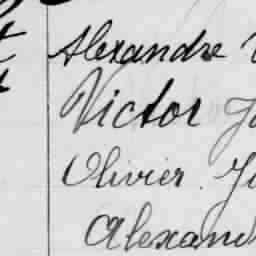 Alexandre
Victor
Olivier.
Alexand